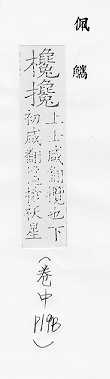 佩觿
欃攙
上士咸翻攙也下
初咸翻欃槍妖星
(卷中
P19B)